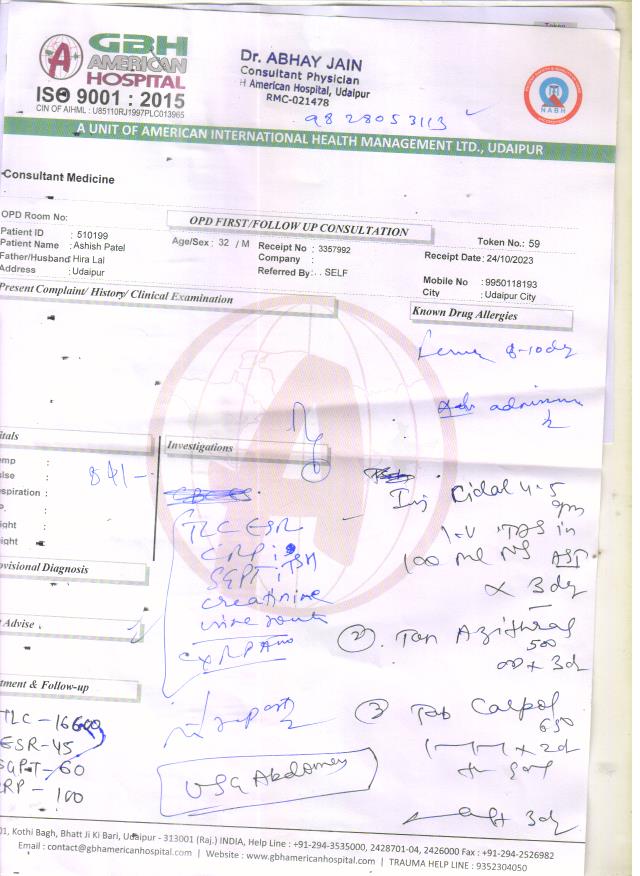 GBH
AMERICAN
HOSPITAL
ISO 9001 : 2015
CIN OF AIHML : U85110RJ1997PLC013965
Dr. ABHAY JAIN
Consultant Physician
H American Hospital, Udaipur
RMC-021478
9828053113
NABH
A UNIT OF AMERICAN INTERNATIONAL HEALTH MANAGEMENT LTD., UDAIPUR
Consultant Medicine
OPD Room No:
OPD FIRST/FOLLOW UP CONSULTATION
Token No.: 59
Patient ID : 510199
Patient Name : Ashish Patel
Age/Sex : 32 / M
Receipt No : 3357992
Receipt Date : 24/10/2023
Father/Husband Hira Lal
Company :
Address : Udaipur
Referred By: . . SELF
Mobile No : 9950118193
City : Udaipur City
Present Complaint/ History/ Clinical Examination
Known Drug Allergies
8-10 day
Adv
itals
Investigations
emp :
ulse :
espiration :
84/-
ight :
eight :
TLC ESR
CRP
SGPT TSH
creatinine
urine
CXR PA
Inj
4.5
gm
I.V TDS in
100 ml NS AST
x 3 day
ovisional Diagnosis
Advise :
② Tab Azithral
500
OD x 3d
tment & Follow-up
TLC - 16600
ESR - 45
SGPT - 60
RP - 100
USG Abdomen
③ Tab Calpol
650
1-1-1 x 2d
3d
01, Kothi Bagh, Bhatt Ji Ki Bari, Udaipur - 313001 (Raj.) INDIA, Help Line : +91-294-3535000, 2428701-04, 2426000 Fax : +91-294-2526982
Email : contact@gbhamericanhospital.com | Website : www.gbhamericanhospital.com | TRAUMA HELP LINE : 9352304050